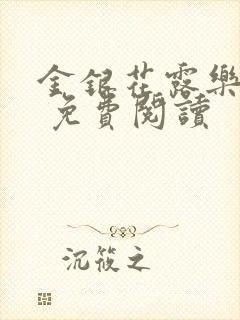 金銀花露樂
免費閱讀
沉筱之